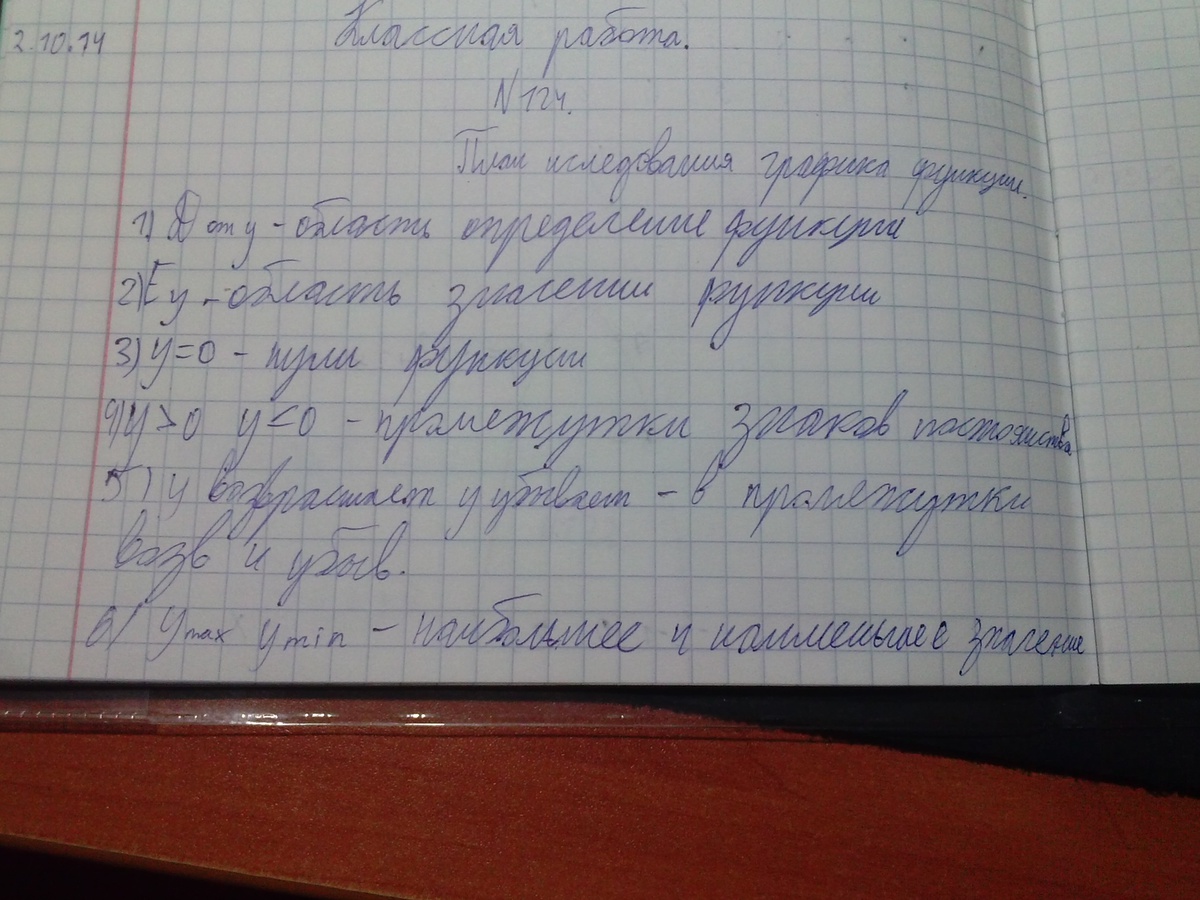 2.10.14
Классная работа.
N 124.
План иследования графика функции.
1) D от y - область определение функции
2) E y - область значении функции
3) y=0 - нули функции
4) y>0 y<0 - промежутки знаков постоянства
5) y возврастает y убывает - в промежутки
возв и убыв.
6) y max y min - наибольшее и наименьшее значение